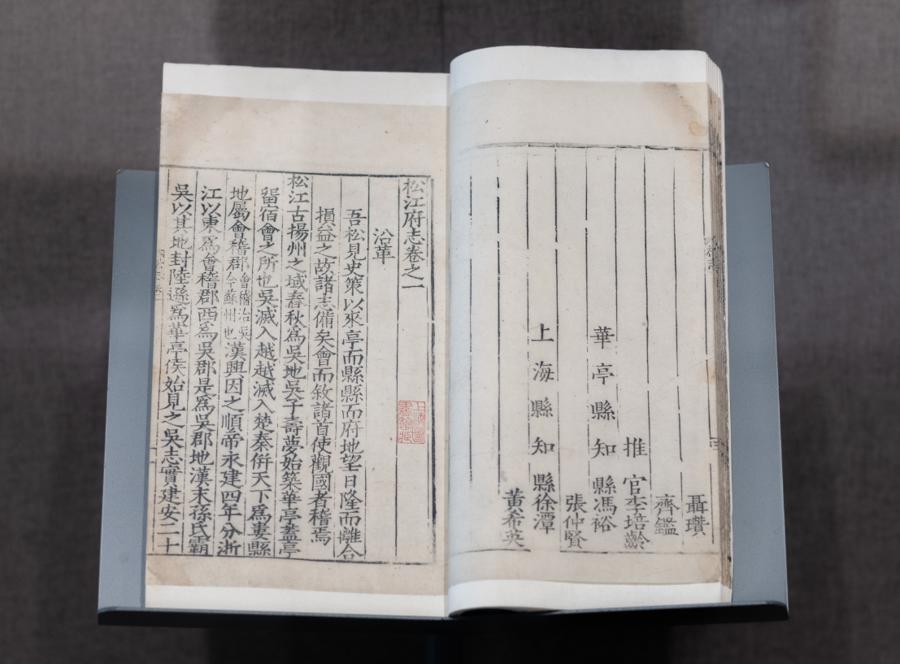 聶瓚
齊鑑
推官李培齡
華亭縣知縣馮裕
張仲賢
上海縣知縣徐潭
黃希英
松江府志卷之一
上海圖書館藏
沿革
吾松見史策以來亭而縣縣而府地望日隆而離合
損益之故諸志備矣會而敘諸首使觀國者稽焉
松江古揚州之域春秋爲吳地吳子壽夢始築華亭蓋亭
留宿會之所也吳滅入越越滅入楚秦併天下爲婁縣
地屬會稽郡會稽治吳今蘇州也漢興因之順帝永建四年分浙
江以東爲會稽郡西爲吳郡是爲吳郡地漢末孫氏霸
吳以其地封陸遜爲華亭侯始見之吳志實建安二十